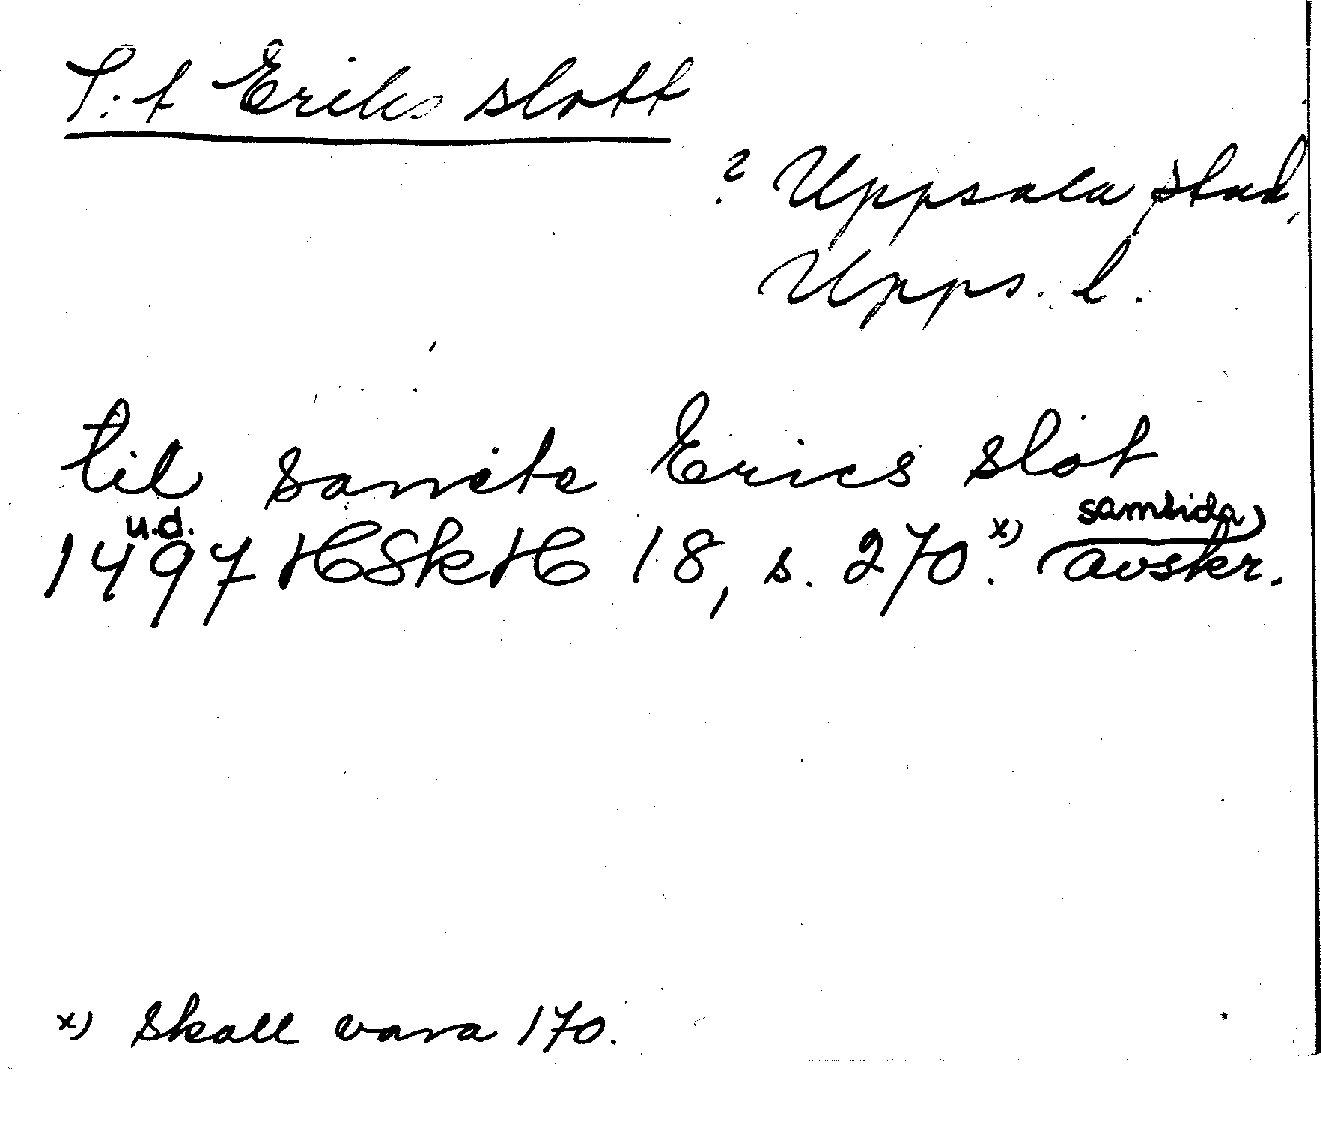 S:t Eriks slott
? Uppsala stad,
Upps. l.
til sancte Erics slot
u.d. samtida
1497 HSkH 18, s. 270.x) avskr.
x) Skall vara 170.